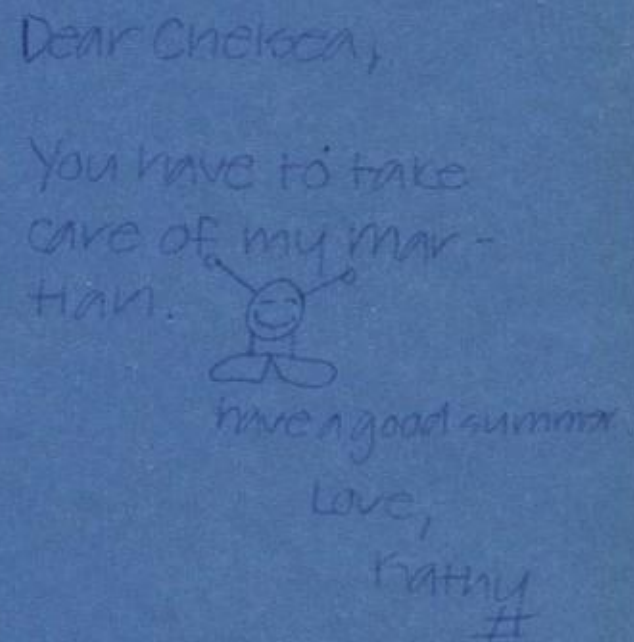 Dear Chelsea,
You have to take
care of my mar-
tian.
have a good summer
Love,
Kathy
#